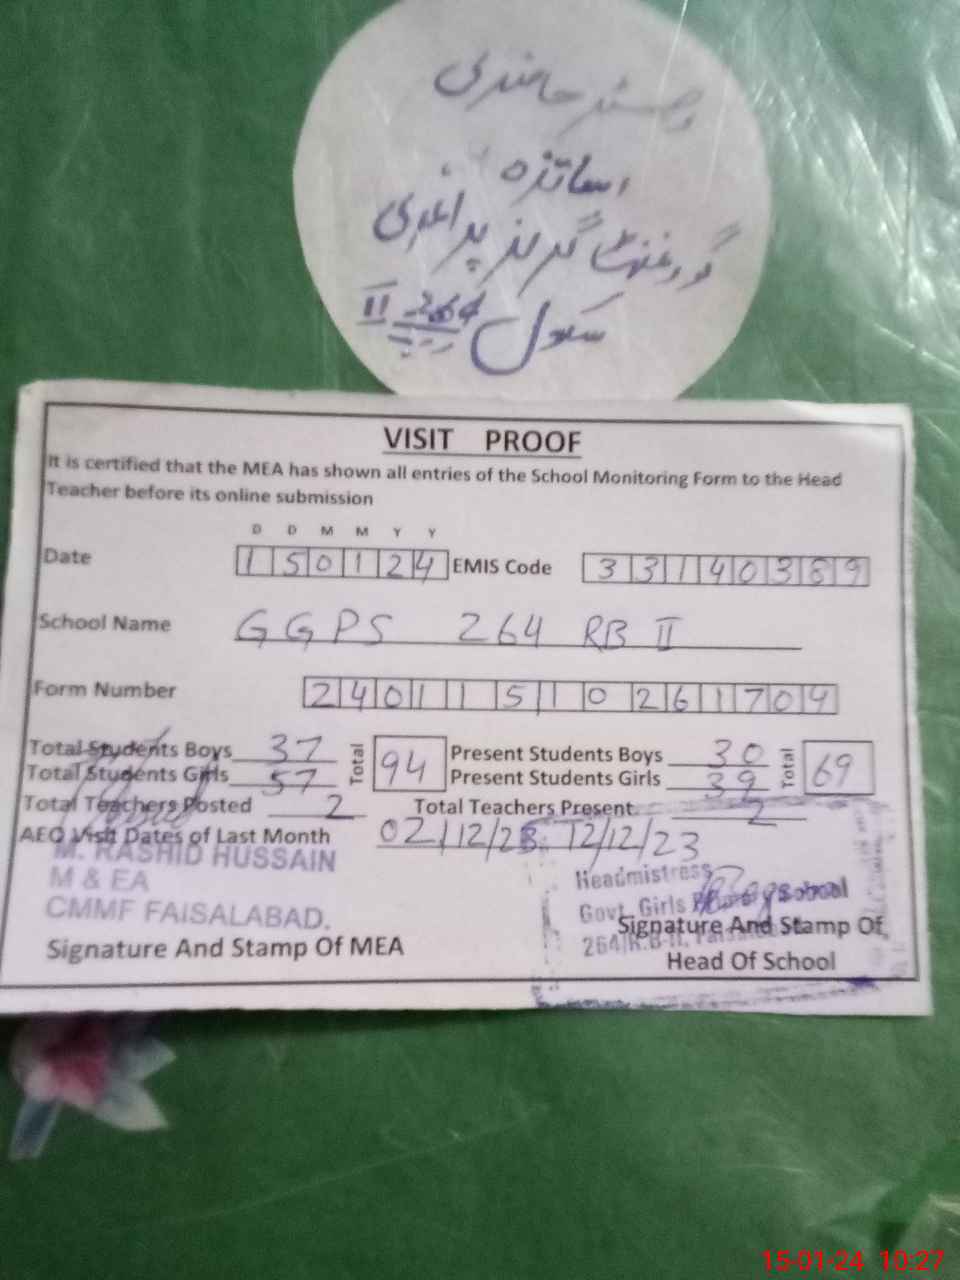 رجسٹر حاضری
اساتذہ
گورنمنٹ گرلز پرائمری
سکول 264 II
VISIT PROOF
It is certified that the MEA has shown all entries of the School Monitoring Form to the Head
Teacher before its online submission
D D M M Y Y
Date 150124 EMIS Code 33140389
School Name GGPS 264 RB II
Form Number 24011510261704
Total Students Boys 37 Total 94 Present Students Boys 30 Total 69
Total Students Girls 57 Present Students Girls 39
Total Teachers Posted 2 Total Teachers Present 2
AEO Visit Dates of Last Month 02/12/23. 12/12/23
M. RASHID HUSSAIN
M & EA
CMMF FAISALABAD.
Signature And Stamp Of MEA
Headmistress
Govt. Girls Primary School
264/R.B-II, Faisalabad
Signature And Stamp Of
Head Of School
15-01-24 10:27